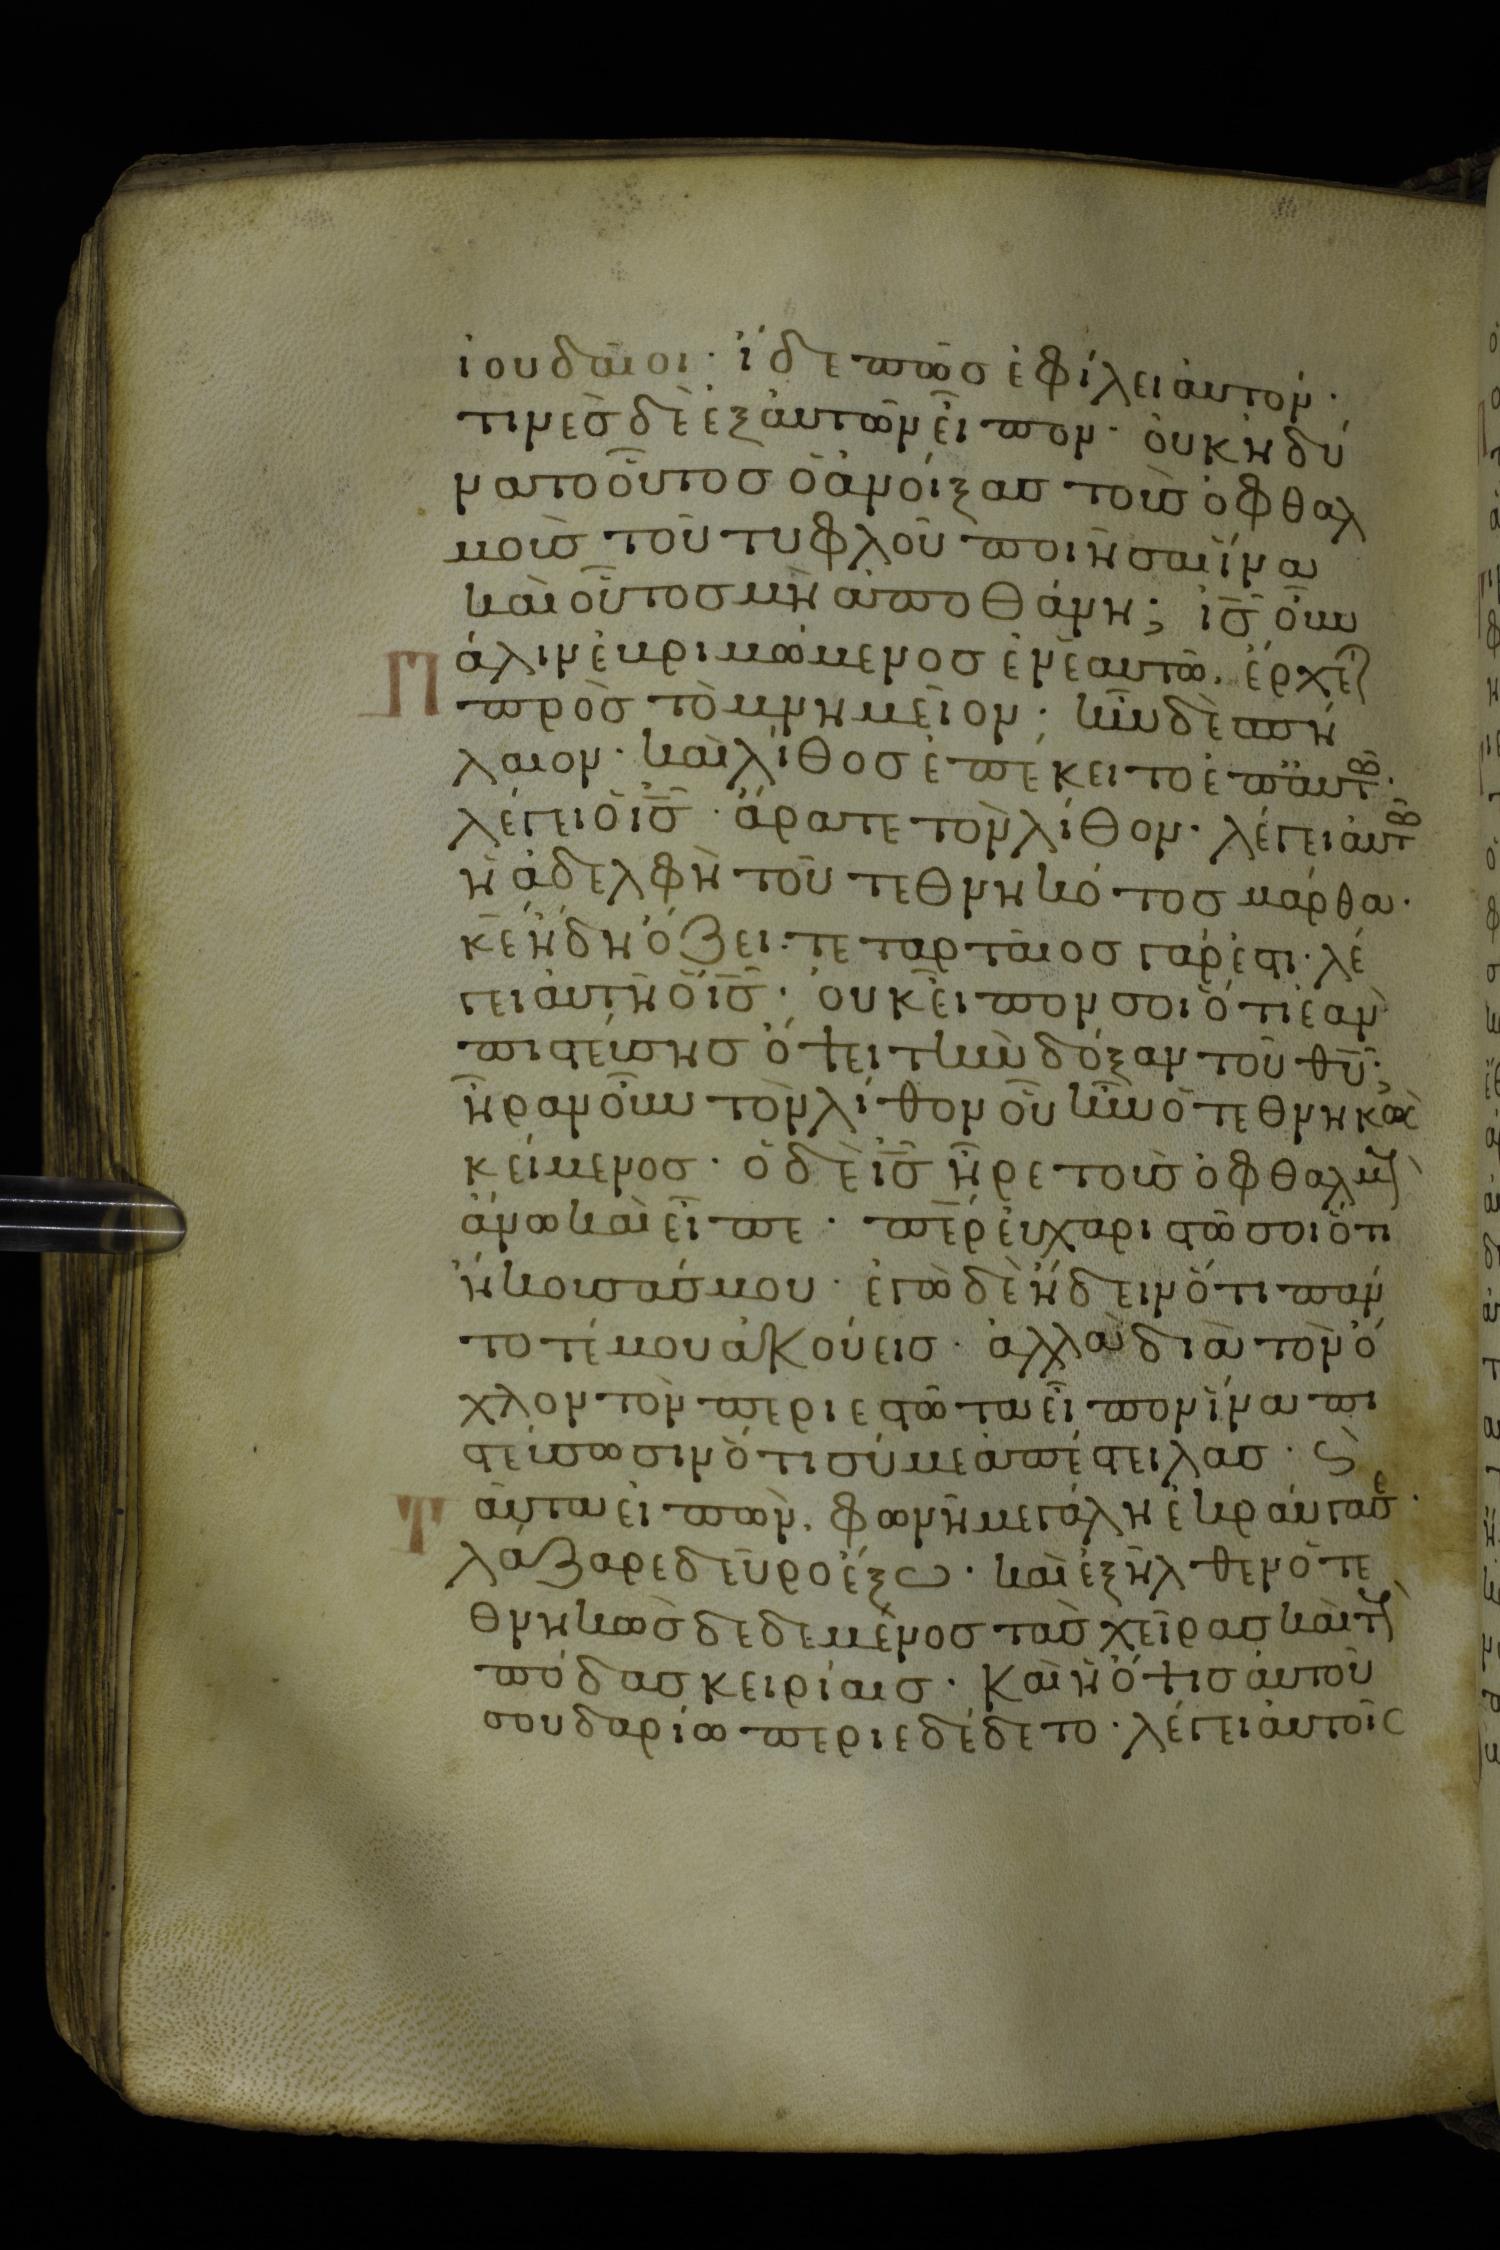 ἰουδαῖοι· ἴδε πῶς ἐφίλει αὐτόν·
τινὲς δὲ ἐξ αὐτῶν εἶπον· οὐκ ἠδύ
νατο οὗτος ὁ ἀνοίξας τοὺς ὀφθαλ
μοὺς τοῦ τυφλοῦ ποιῆσαι ἵνα
καὶ οὗτος μὴ ἀποθάνη; ις οὖν
Πάλιν ἐμβριμώμενος ἐν ἑαυτῶ· ἔρχεται
πρὸς τὸ μνημεῖον· ἦν δὲ σπή
λαιον· καὶ λίθος ἐπέκειτο ἐπ αὐτῶ·
λέγει ὁ ις· ἄρατε τὸν λίθον· λέγει αὐτῶ
ἡ ἀδελφὴ τοῦ τεθνηκότος μάρθα·
κε ἤδη ὄζει· τεταρταῖος γάρ ἐστι· λέ
γει αὐτῆ ὁ ις· οὐκ εἶπον σοι ὅτι ἐὰν
πιστεύσης ὄψει τὴν δόξαν τοῦ θυ·
ἦραν οὖν τὸν λίθον οὗ ἦν ὁ τεθνηκὼς
κείμενος· ὁ δὲ ις ἦρε τοὺς ὀφθαλμοὺς
ἄνω καὶ εἶπε· περ εὐχαριστῶ σοι ὅτι
ἤκουσάς μου· ἐγὼ δὲ ἤδειν ὅτι πάν
τοτέ μου ἀκούεις· ἀλλὰ διὰ τὸν ὄ
χλον τὸν περιεστῶτα εἶπον ἵνα πι
στεύσωσιν ὅτι σύ με ἀπέστειλας· ϗ
Ταῦτα εἰπὼν· φωνῆ μεγάλη ἐκραύγασε·
λάζαρε δεῦρο ἔξω· καὶ ἐξῆλθεν ὁ τε
θνηκὼς δεδεμένος τὰς χεῖρας καὶ τοὺς
πόδας κειρίαις· Καὶ ἡ ὄψις αὐτοῦ
σουδαρίω περιεδέδετο· λέγει αὐτοῖς